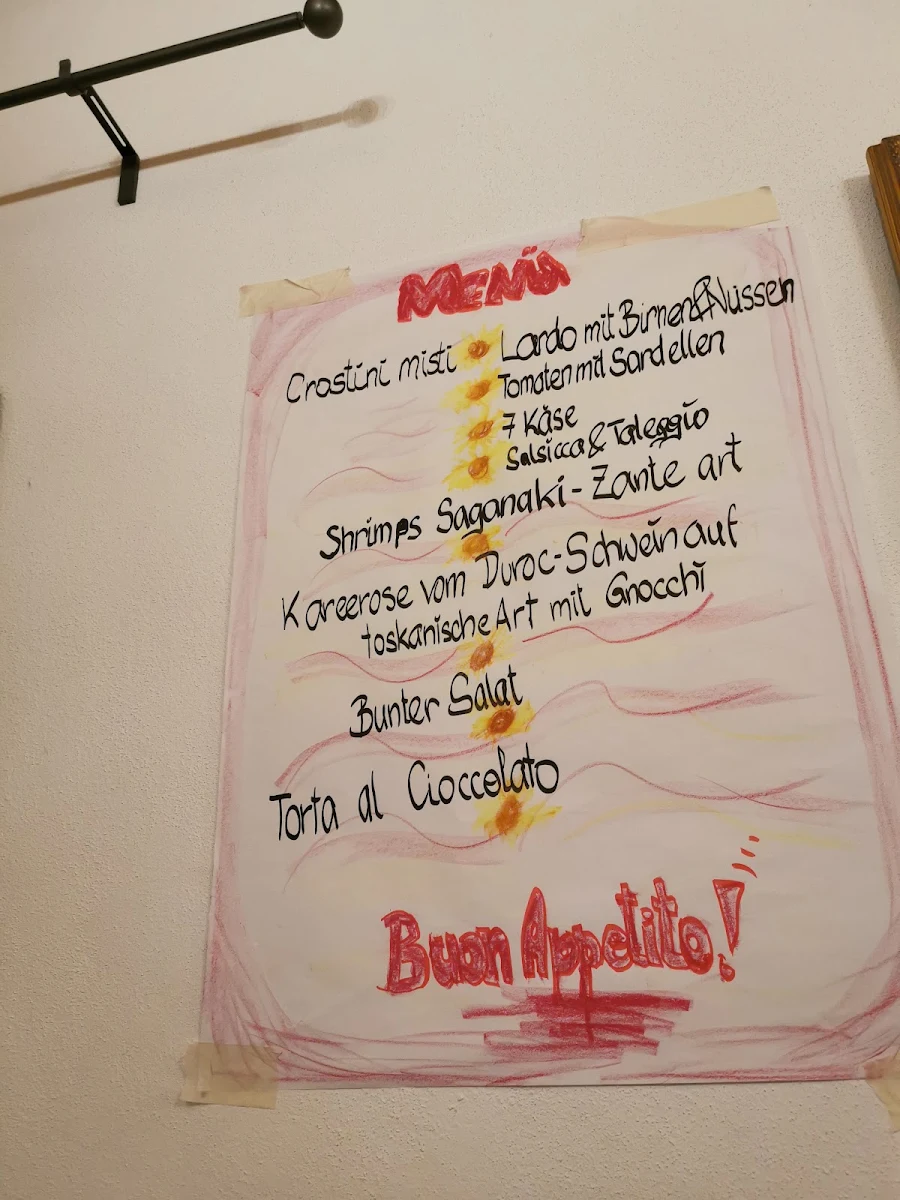 Menü
Crostini misti
Lardo mit Birnen & Nüssen
Tomaten mit Sardellen
7 Käse
Salsicca & Taleggio
Shrimps Saganaki - Zante art
Kareerose vom Duroc-Schwein auf
toskanische Art mit Gnocchi
Bunter Salat
Torta al Cioccolato
Buon Appetito!